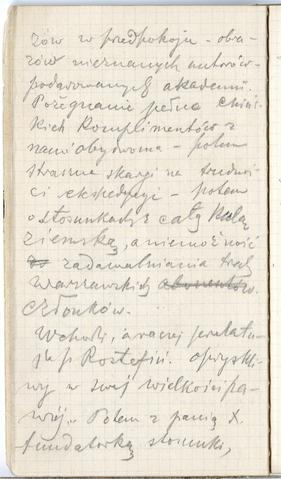 zów w przedpokoju – obra-
zów nieznanych autorów –
podarowanych akademii.
Pożegnanie pełne chińs-
kich komplimentów z
nami obydwoma – potem
straszne skargi na trudnoś-
ci ekspedycyi – potem
o stosunkach z całą kulą
ziemską, a niemożność
zadawalniania tych
warszawskich
członków.
Wchodzi, a raczej
p. Rostafiń. opryskli-
wy w swej wielkości pa-
wiej.. Potem z panią X.
fundatorką stosunki,